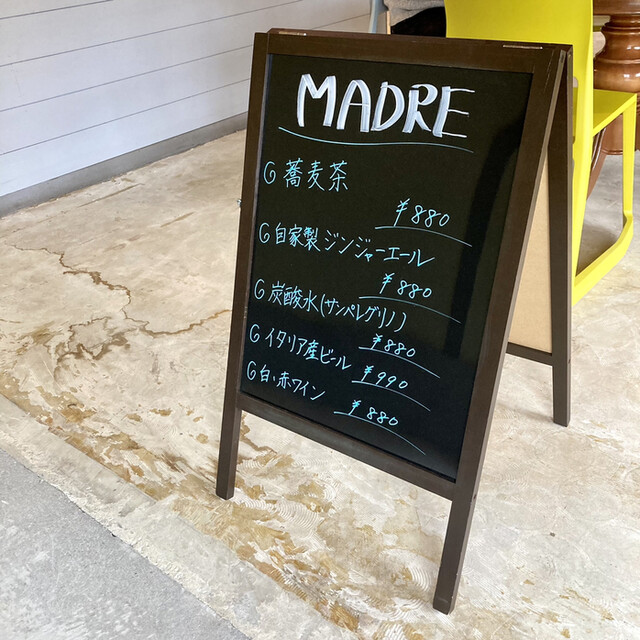 MADRE
G 蕎麦茶
¥880
G 自家製ジンジャーエール
¥880
G 炭酸水(サンペレグリノ)
¥880
G イタリア産ビール
¥990
G 白・赤ワイン
¥880